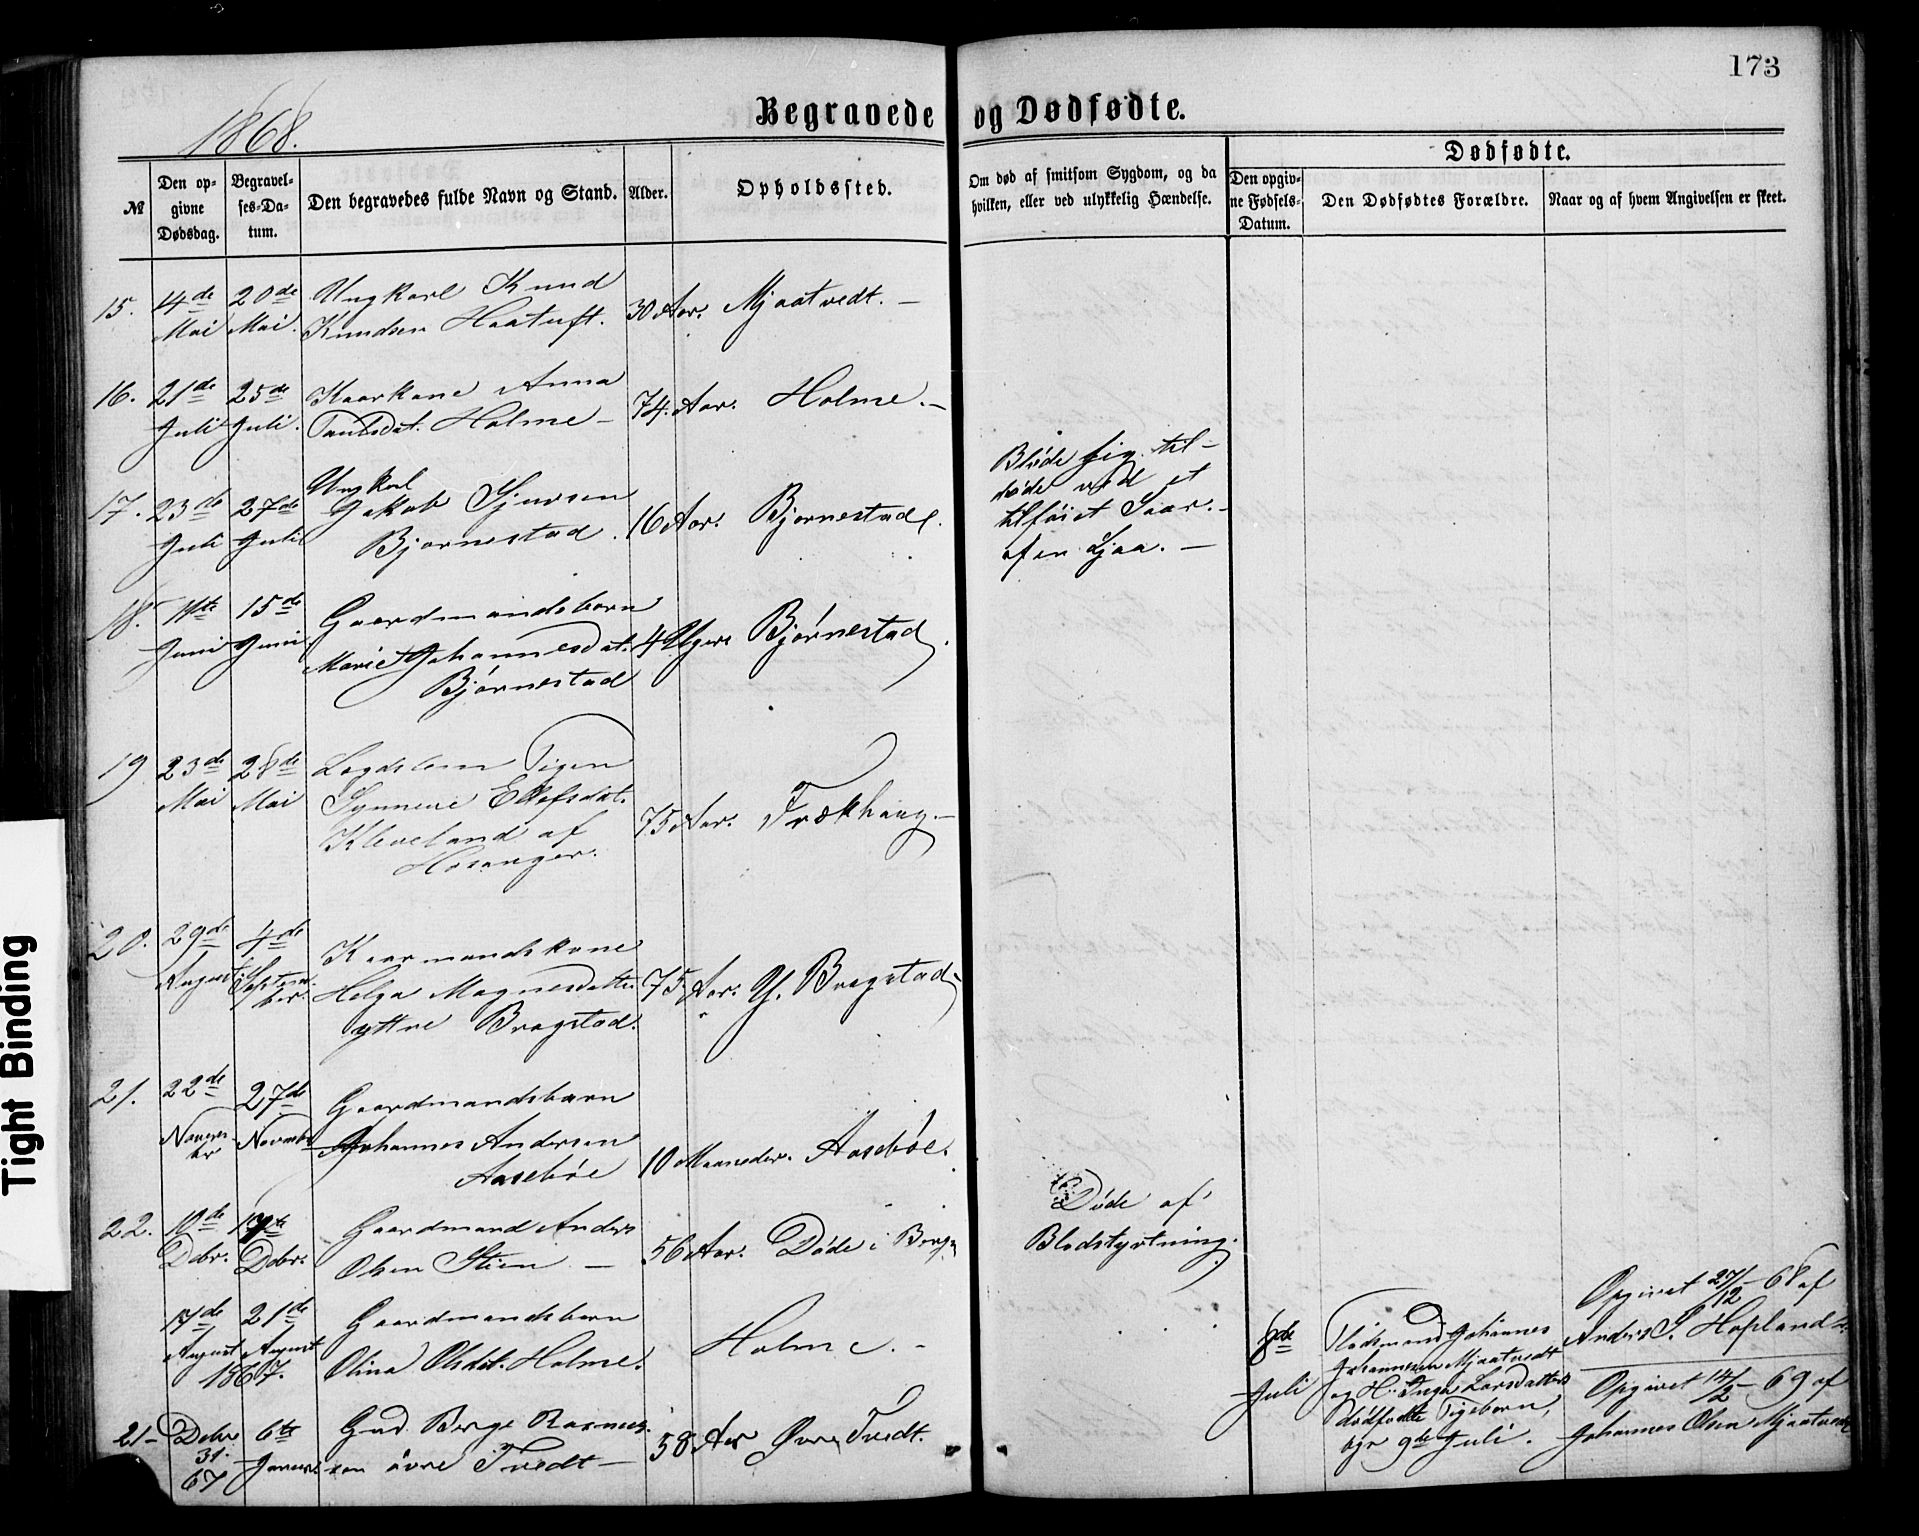 173
1868.
Begravede og Dødfødte.
№
Den opgivne Dødsdag.
Begravelses-Datum.
Den begravedes fulde Navn og Stand.
Alder.
Opholdssted.
Om død af smitsom Sygdom, og da hvilken, eller ved ulykkelig Hændelse.
Dødfødte.
Den opgivne Fødsels-Datum.
Den Dødfødtes Forældre.
Naar og af hvem Angivelsen er skeet.
15. 14de Mai 20de Mai. Ungkarl Knud
Knudsen Haatuft. 30 Aar. Mjaatvedt. —
16. 21de Juli 25de Juli. Kaarkone Anna
Paulsdat. Holme — 74. Aar. Holme. —
17. 23de Juli 27de Juli Ungkarl
Jakob Sjursen
Bjørnestad. 16 Aar. Bjørnestad.
Blöde sig til-
döde ved et
tilföiet Saar. -
af en Ljaa. —
18. 11te Juni 15de Juni Gaardmandsbarn
Marie Johannesdat.
Bjørnestad 4 Uger Bjørnestad.
19 23de Mai 28de Mai Lægdslem Pigen
Synneve Ellefsdat.
Kleveland af
Hosanger. 75 Aar. Trækhaug. —
20. 29de August 4de September. Kaarmandskone
Helga Magnesdatter
yttre Bragstad. 75 Aar. Y. Bragstad —
21. 22de November 27de Novembr Gaardmandsbarn
Johannes Andersen
Aasebøe 10 Maaneder. Aasebøe.
22. 10de Debr. 17te Debr. Gaardmand Anders
Olsen Stien — 56 Aar. Døde i Bergen
Døde af
Blodstyrtning.
17de August 21de August 1867. Gaardmandsbarn
Olina Olsdat. Holme. Holme. -
21 — Debr 31. 67 6te Januar Gmd. Berge Rasmus-
sen övre Tvedt — 58 Aar Øvre Tvedt.
8de Juli
Pladsmand Johannes
Johannesen Mjaatvedt
og H. Inga Larsdatters
dødfødte Pigebarn,
bgr 9de Juli.
Opgivet 27/12 - 68 af
Anders J. Hopland
Opgivet 14/2 - 69 af
Johannes Olsen Mjaatvedt
Tight Binding